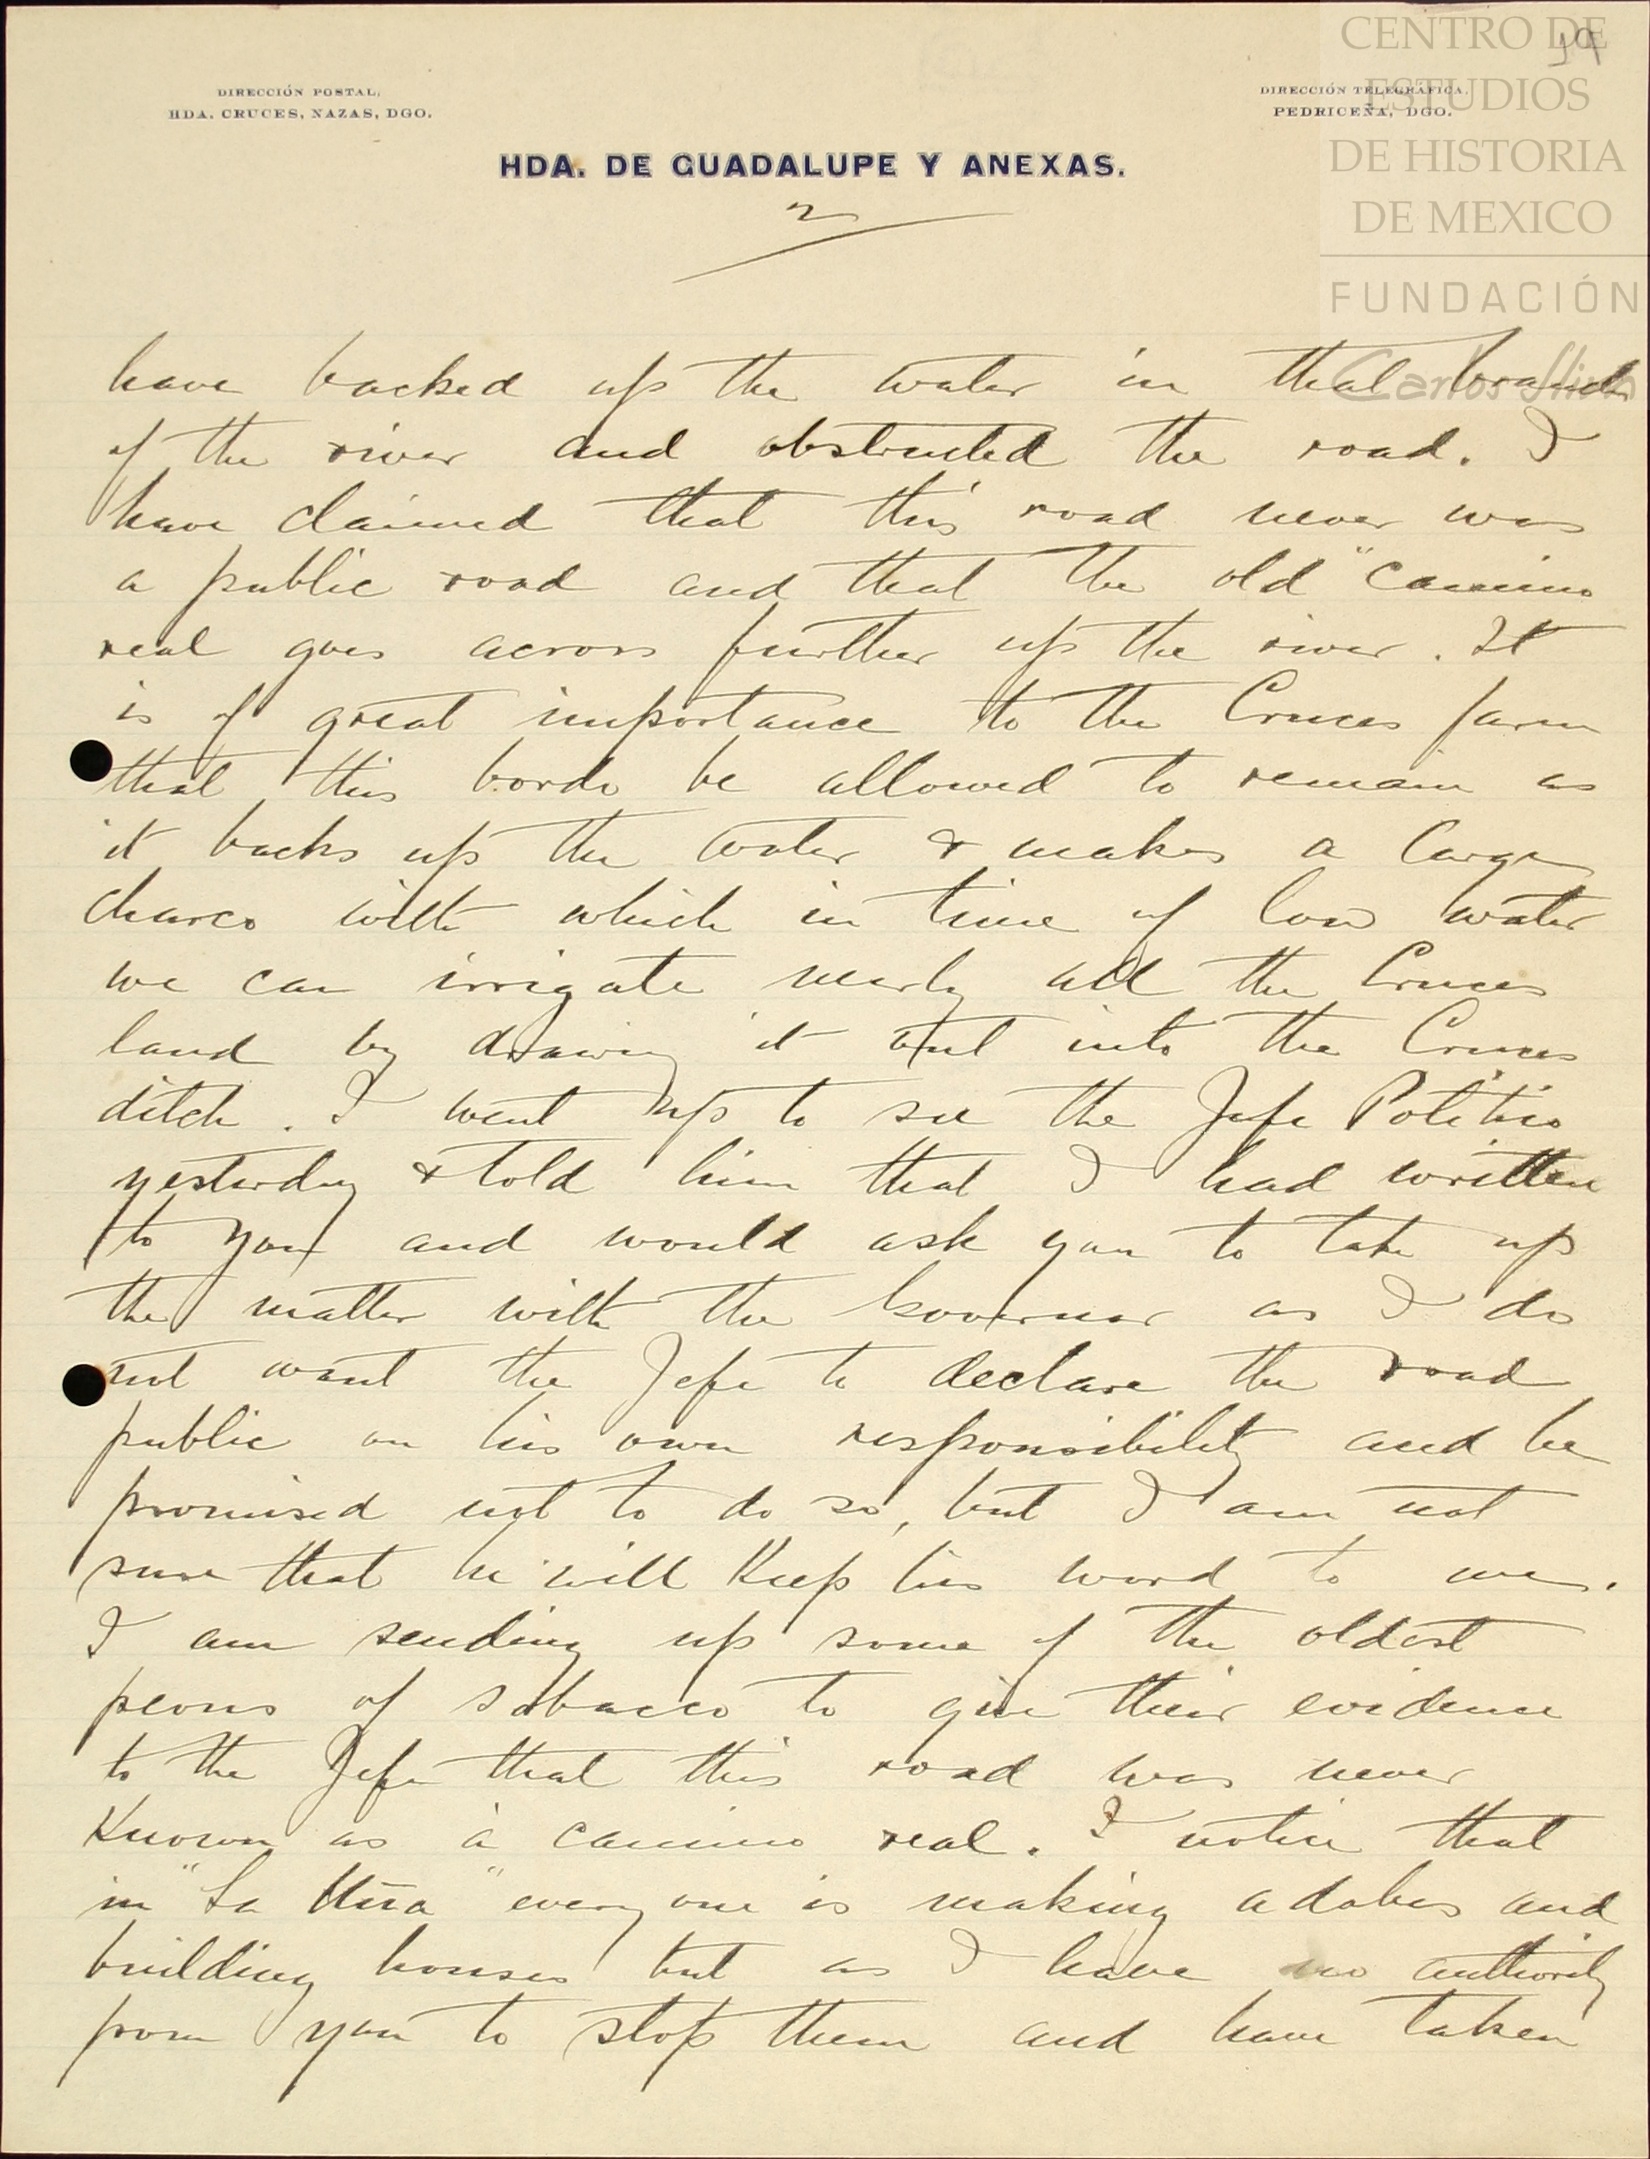 19
CENTRO DE
ESTUDIOS
DE HISTORIA
DE MEXICO
FUNDACIÓN
Carlos Slim
DIRECCIÓN POSTAL,
HDA. CRUCES, NAZAS, DGO.
DIRECCIÓN TELEGRÁFICA,
PEDRICEÑA, DGO.
HDA. DE GUADALUPE Y ANEXAS.
2
have backed up the water in that branch
of the river and obstructed the road. I
have claimed that this road never was
a public road and that the old "camino
real goes across further up the river. It
is of great importance to the Cruces farm
that this bordo be allowed to remain as
it backs up the water & makes a large
charco with which in time of low water
we can irrigate nearly all the Cruces
land by drawing it out into the Cruces
ditch. I went up to see the Jefe Politico
yesterday & told him that I had written
to you and would ask you to take up
the matter with the Governor as I do
not want the Jefe to declare the road
public on his own responsibility and he
promised not to do so, but I am not
sure that he will keep his word to me.
I am sending up some of the oldest
peons of Sobaco to give their evidence
to the Jefe that this road was never
Known as a camino real. I notice that
in "La Uña" every one is making adobes and
building houses but as I have no authority
from you to stop them and have taken